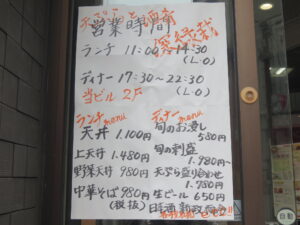 営業時間
ランチ 11:00~14:30
(L.O)
ディナー 17:30~22:30
(L.O)
当ビル 2F
ランチ menu
天丼 1.100円
上天丼 1.480円
野菜天丼 980円
中華そば 980円
(税抜)
ディナー menu
旬のお浸し
580円
旬の刺盛
1.980~
天ぷら盛り合わせ
1.780円
生ビール 650円
日本酒
自動